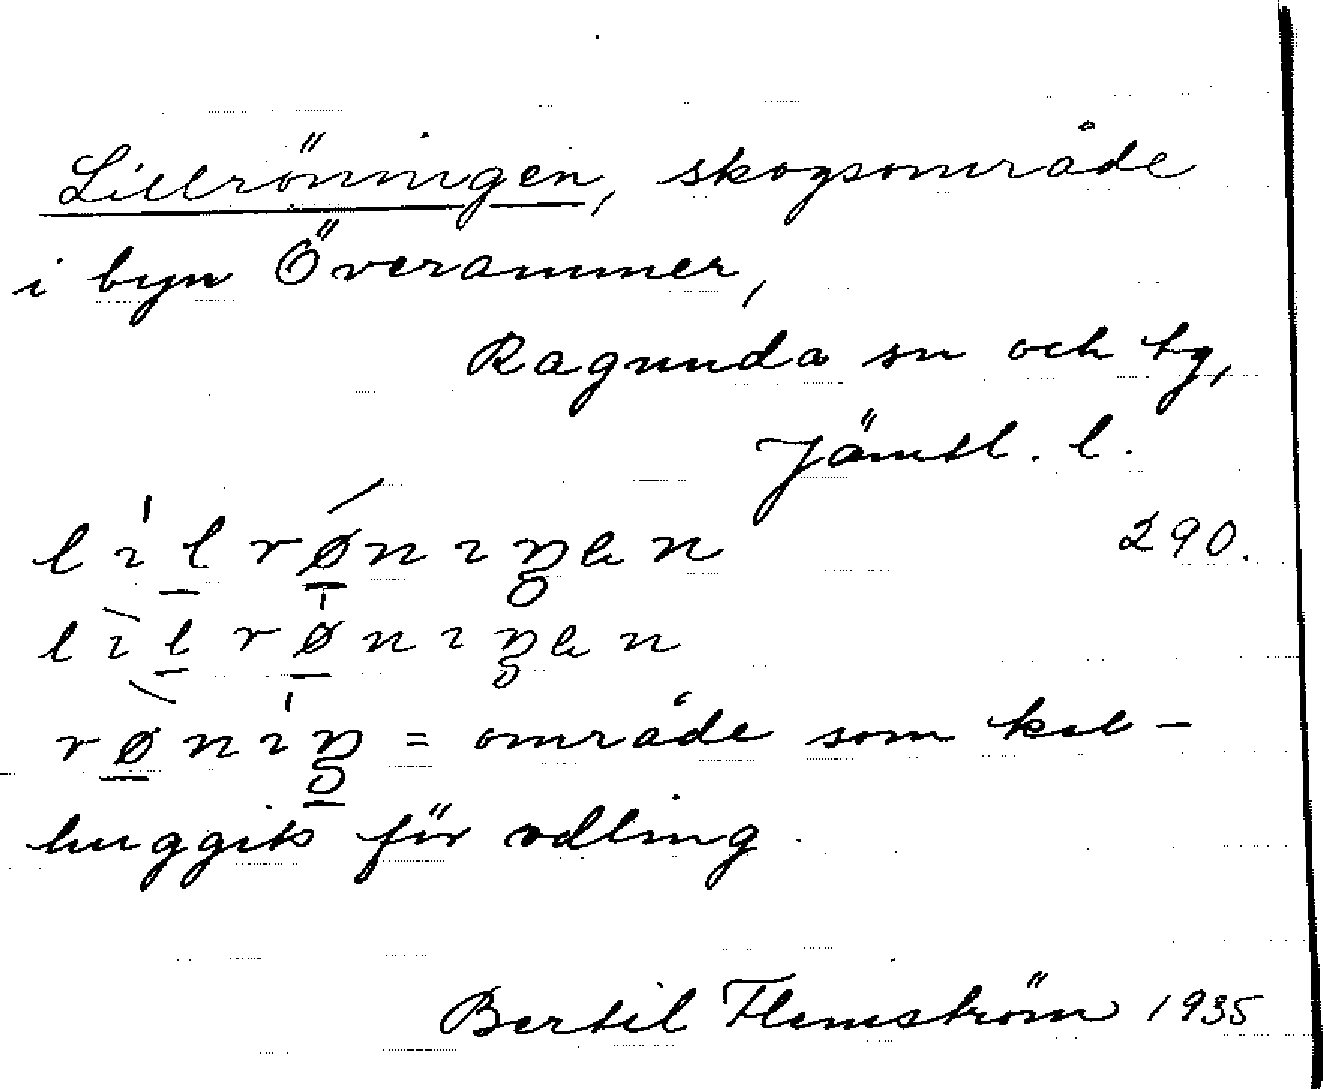 Lillröningen, skogsområde
i byn Överammer,
Ragunda sn och tg,
Jämtl. l.
290.
= område som kal-
huggits för odling.
Bertil Flemström 1935